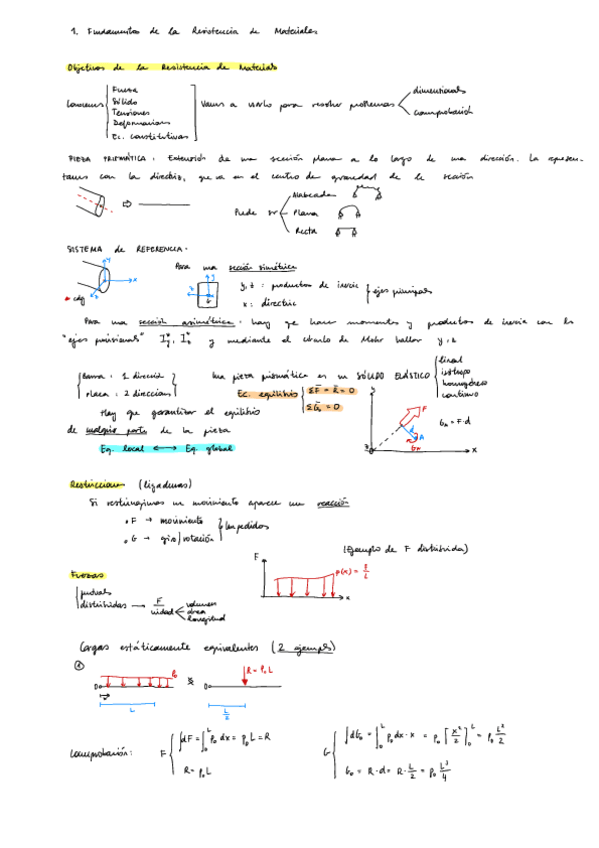 1. Fundamentos de la Resistencia de Materiales
Objetivos de la Resistencia de Materiales
Conocemos
Fuerza
Sólido
Tensiones
Deformaciones
Ec. constitutivas
Vamos a usarlo para resolver problemas
dimensionado
comprobación
PIEZA PRISMÁTICA: Extensión de una sección plana a lo largo de una dirección. La represen-
tamos con la directriz, que va en el centro de gravedad de la sección
Puede ser
Alabeada
Plana
Recta
SISTEMA de REFERENCIA.
y
x
z
* cdg
Para una sección simétrica
z
y
G
y, z : productos de inercia
x : directriz
ejes principales
Para una sección asimétrica. hay que hacer momentos y productos de inercia con los
"ejes provisionales" y mediante el círculo de Mohr hallar y, z
Barra : 1 dirección
Placa : 2 direcciones
Una pieza prismática es un SÓLIDO ELÁSTICO
lineal
isótropo
homogéneo
continuo
Ec. equilibrio
ΣF = R = 0
= 0
Hay que garantizar el equilibrio
de cualquier parte de la pieza
Eq. local ⟷ Eq. global
F
d
A
= F·d
x
Restricciones (ligaduras)
Si restringimos un movimiento aparece una reacción
· F → movimiento
· G → giro/rotación
impedidos
(Ejemplo de F distribuida)
F
x
Fuerzas
puntuales
distribuidas → F/unidad
volumen
área
longitud
Cargas estáticamente equivalentes (2 ejemplos)
①
P₀
O
x
L
O
R = P₀ L
L/2
Comprobación:
F
∫dF = ∫₀ᴸ P₀ dx = P₀ L = R
R = P₀ L
G
∫dG₀ = ∫₀ᴸ P₀ dx · x = P₀ [x²/2]₀ᴸ = P₀ L²/2
G₀ = R·d = R·L/2 = P₀